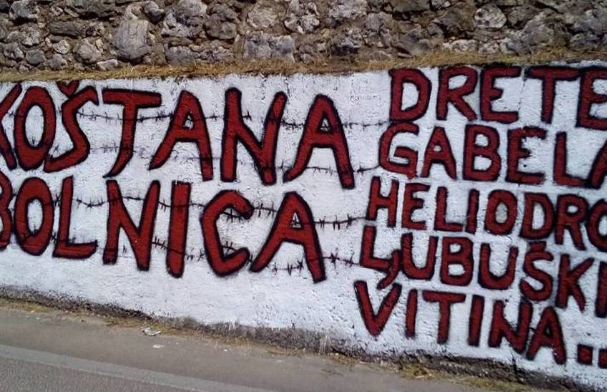 KOŠTANA
BOLNICA
DRETE
GABELA
HELIODRO
LJUBUŠKI
VITINA...